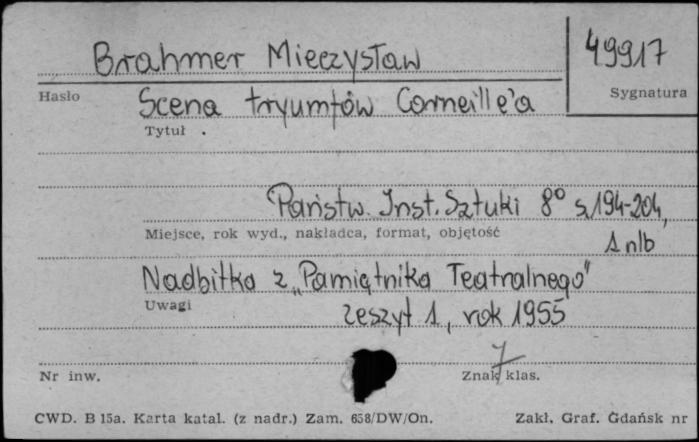 Brahmer Mieczysław
49917
Hasło
Sygnatura
Scena tryumfów Corneille'a
Tytuł .
Państw. Inst. Sztuki 8° s. 194-204,
Miejsce, rok wyd., nakładca, format, objętość
1 nlb
Nadbitka z „Pamiętnika Teatralnego"
Uwagi
zeszyt 1, rok 1955
Nr inw.
Znak klas.
7
CWD. B 15a. Karta katal. (z nadr.) Zam. 658/DW/On.
Zakł. Graf. Gdańsk nr